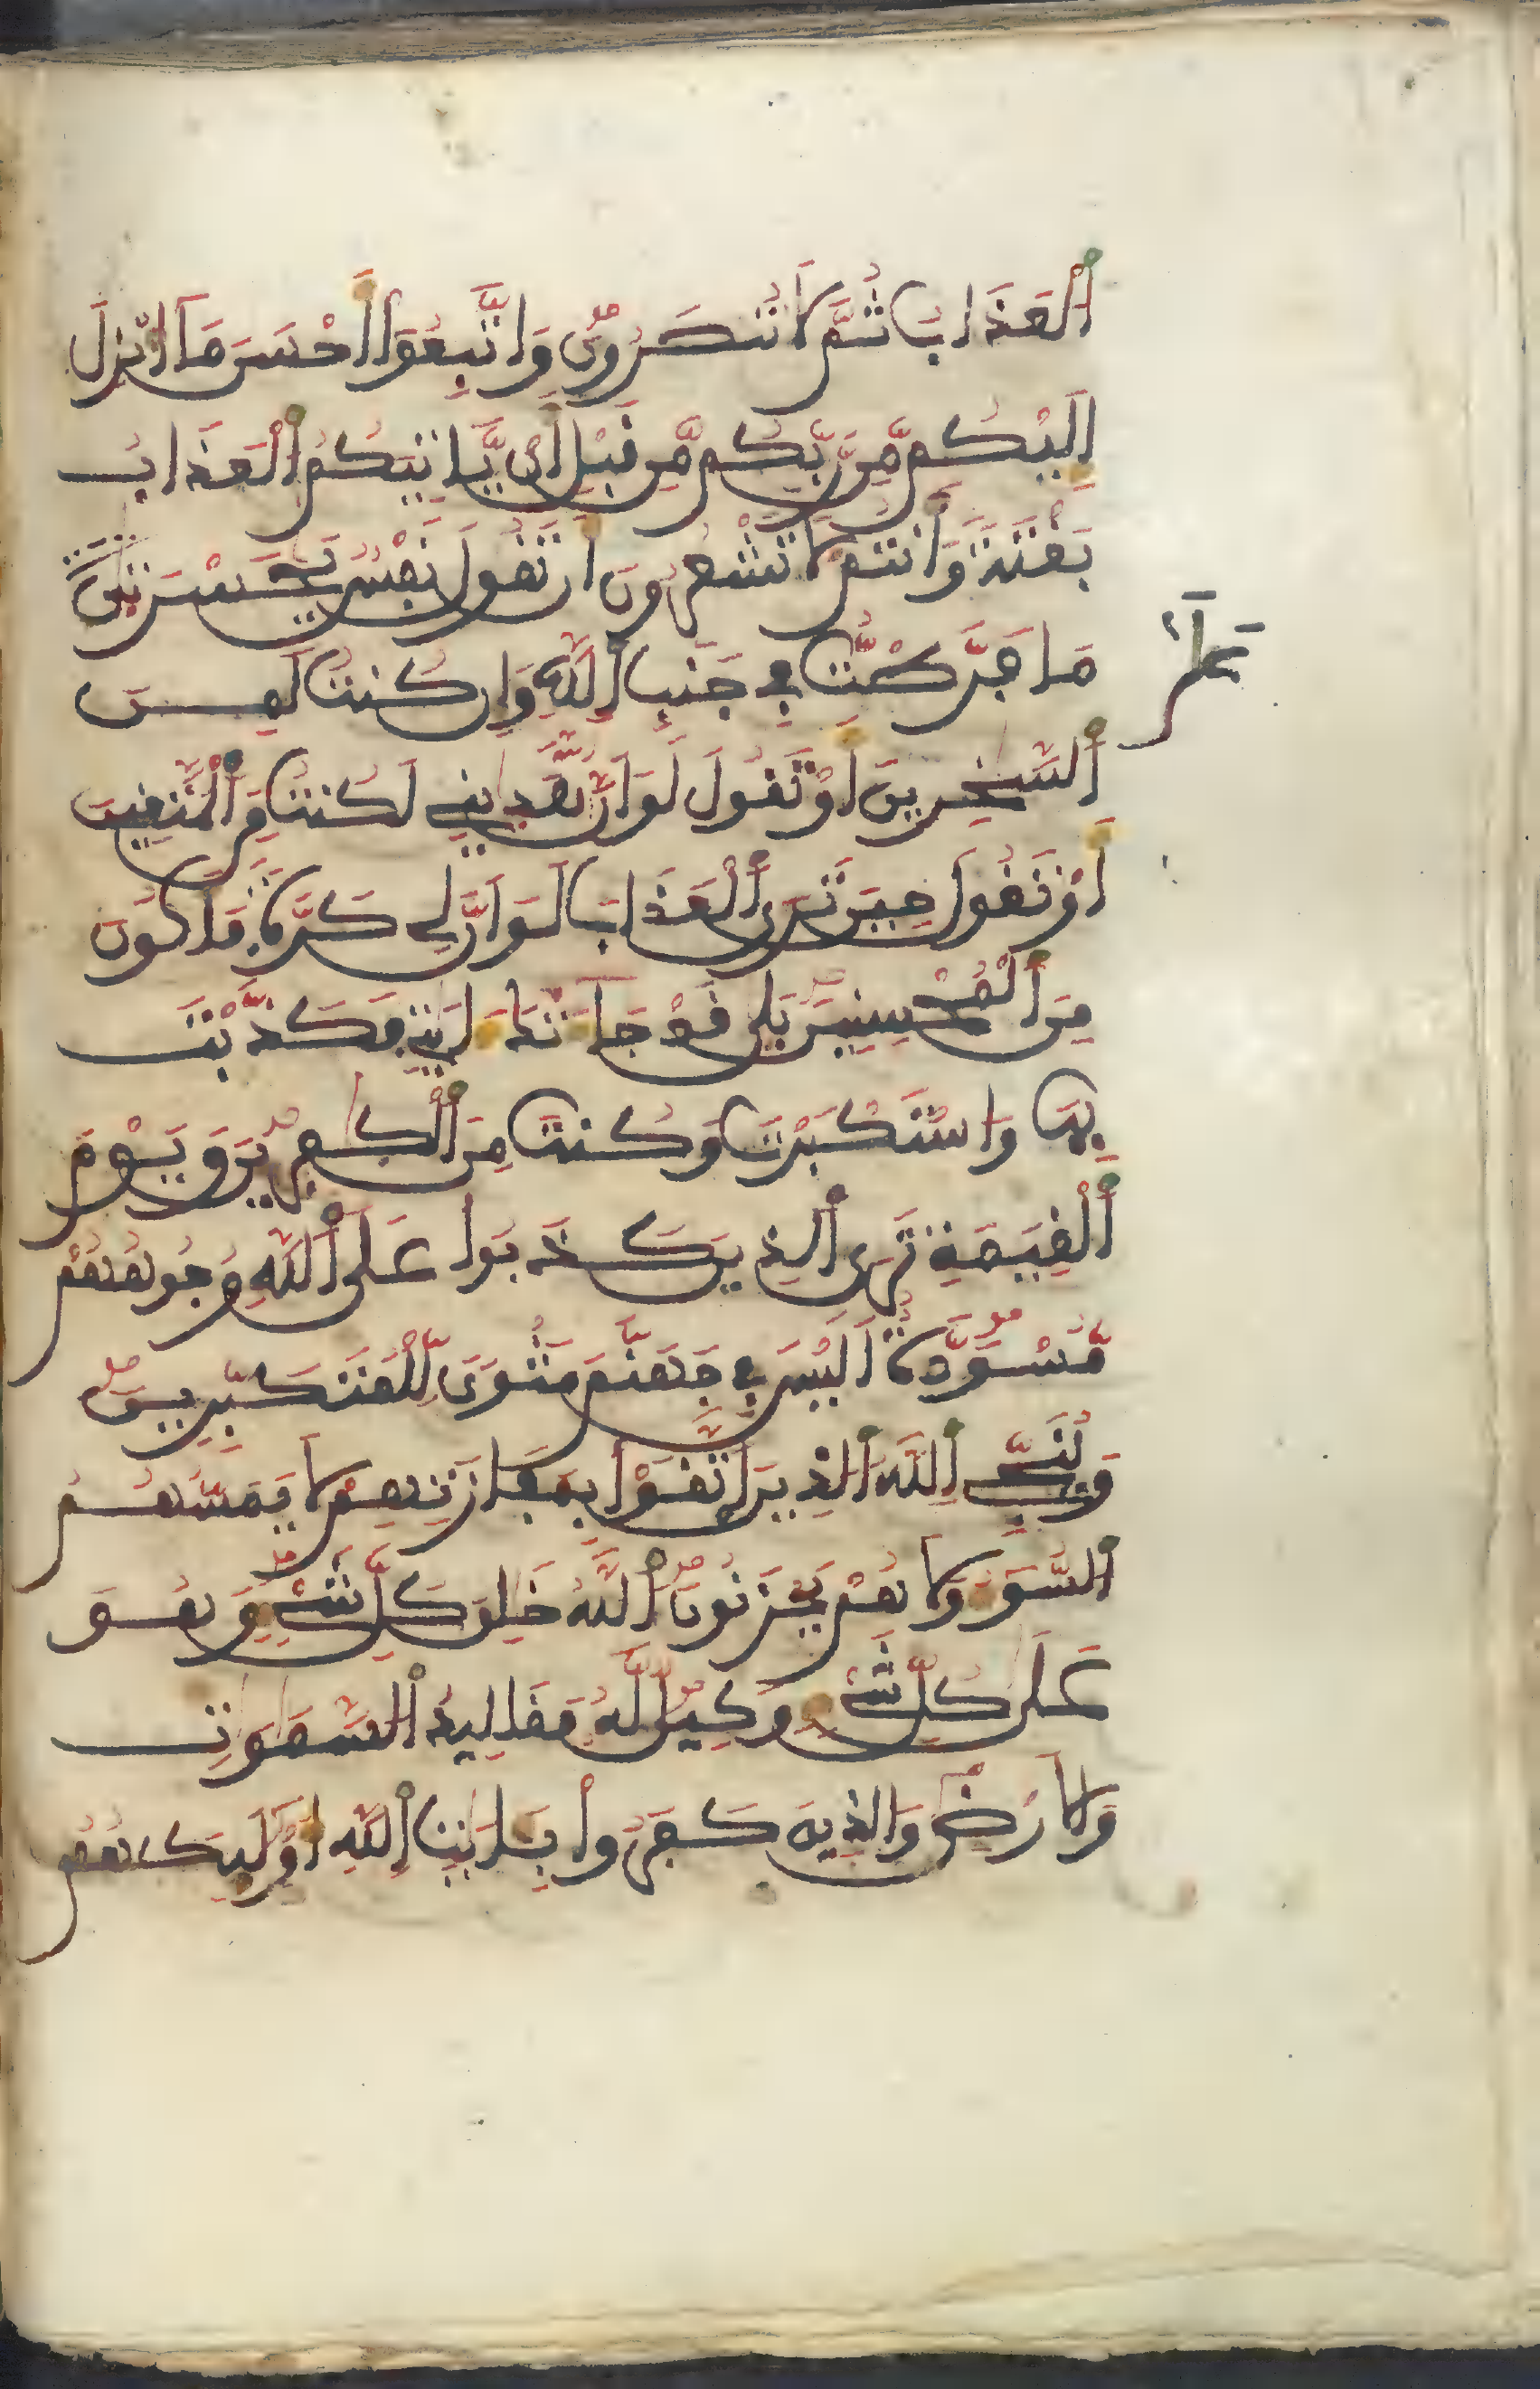 اَ۬لْعَذَابُ ثُمَّ لَا تُنصَرُونَ وَاتَّبِعُوٓاْ أَحْسَنَ مَآ أُنزِلَ
إِلَيْكُم مِّن رَّبِّكُم مِّن قَبْلِ أَنْ يَّاتِيَكُمُ اُ۬لْعَذَابُ
بَغْتَةً وَأَنتُمْ لَا تَشْعُرُونَ أَن تَقُولَ نَفْسٌ يَٰحَسْرَتَىٰ
عَلَىٰ
مَا فَرَّطتُّ فِے جَنۢبِ اِ۬للَّهِ وَإِن كُنتُ لَمِنَ
اَ۬لسَّٰخِرِينَ أَوْ تَقُولَ لَوَ اَنَّ اَ۬للَّهَ هَدَيٰنِے لَكُنتُ مِنَ اَ۬لْمُتَّقِينَ
أَوْ تَقُولَ حِينَ تَرَى اَ۬لْعَذَابَ لَوَ اَنَّ لِے كَرَّةً فَأَكُونَ
مِنَ اَ۬لْمُحْسِنِينَ بَلَىٰ قَدْ جَآءَتْكَ ءَايَٰتِے فَكَذَّبْتَ
بِهَا وَاسْتَكْبَرْتَ وَكُنتَ مِنَ اَ۬لْكَٰفِرِينَ وَيَوْمَ
اَ۬لْقِيَٰمَةِ تَرَى اَ۬لذِينَ كَذَبُواْ عَلَى اَ۬للَّهِ وُجُوهُهُم
مُّسْوَدَّةٌ اَلَيْسَ فِے جَهَنَّمَ مَثْوًى لِّلْمُتَكَبِّرِينَ
وَيُنَجِّے اِ۬للَّهُ اُ۬لذِينَ اَ۪تَّقَوْاْ بِمَفَازَتِهِمْ لَا يَمَسُّهُمُ
اُ۬لسُّوٓءُ وَلَا هُمْ يَحْزَنُونَ اَ۬للَّهُ خَٰلِقُ كُلِّ شَےْءٍ وَهُوَ
عَلَىٰ كُلِّ شَےْءٍ وَكِيلٌ لَّهُۥ مَقَالِيدُ اُ۬لسَّمَٰوَٰتِ
وَالَارْضِ وَالذِينَ كَفَرُواْ بِـَٔايَٰتِ اِ۬للَّهِ أُوْلَٰٓئِكَ هُمُ